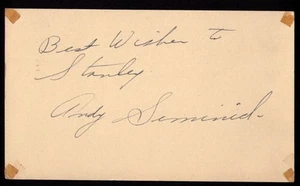 Best Wishes to
Stanley
Andy Seminick